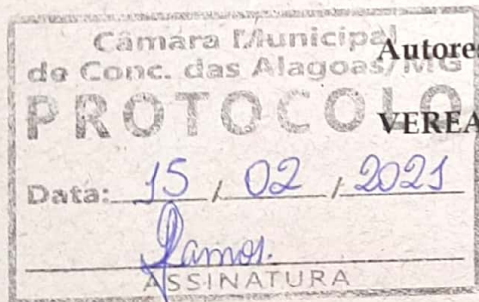 Câmara Municipal
de Conc. das Alagoas/MG
Autores
PROTOCOLO
VEREA
Data: 15 / 02 / 2021
Ramos.
ASSINATURA